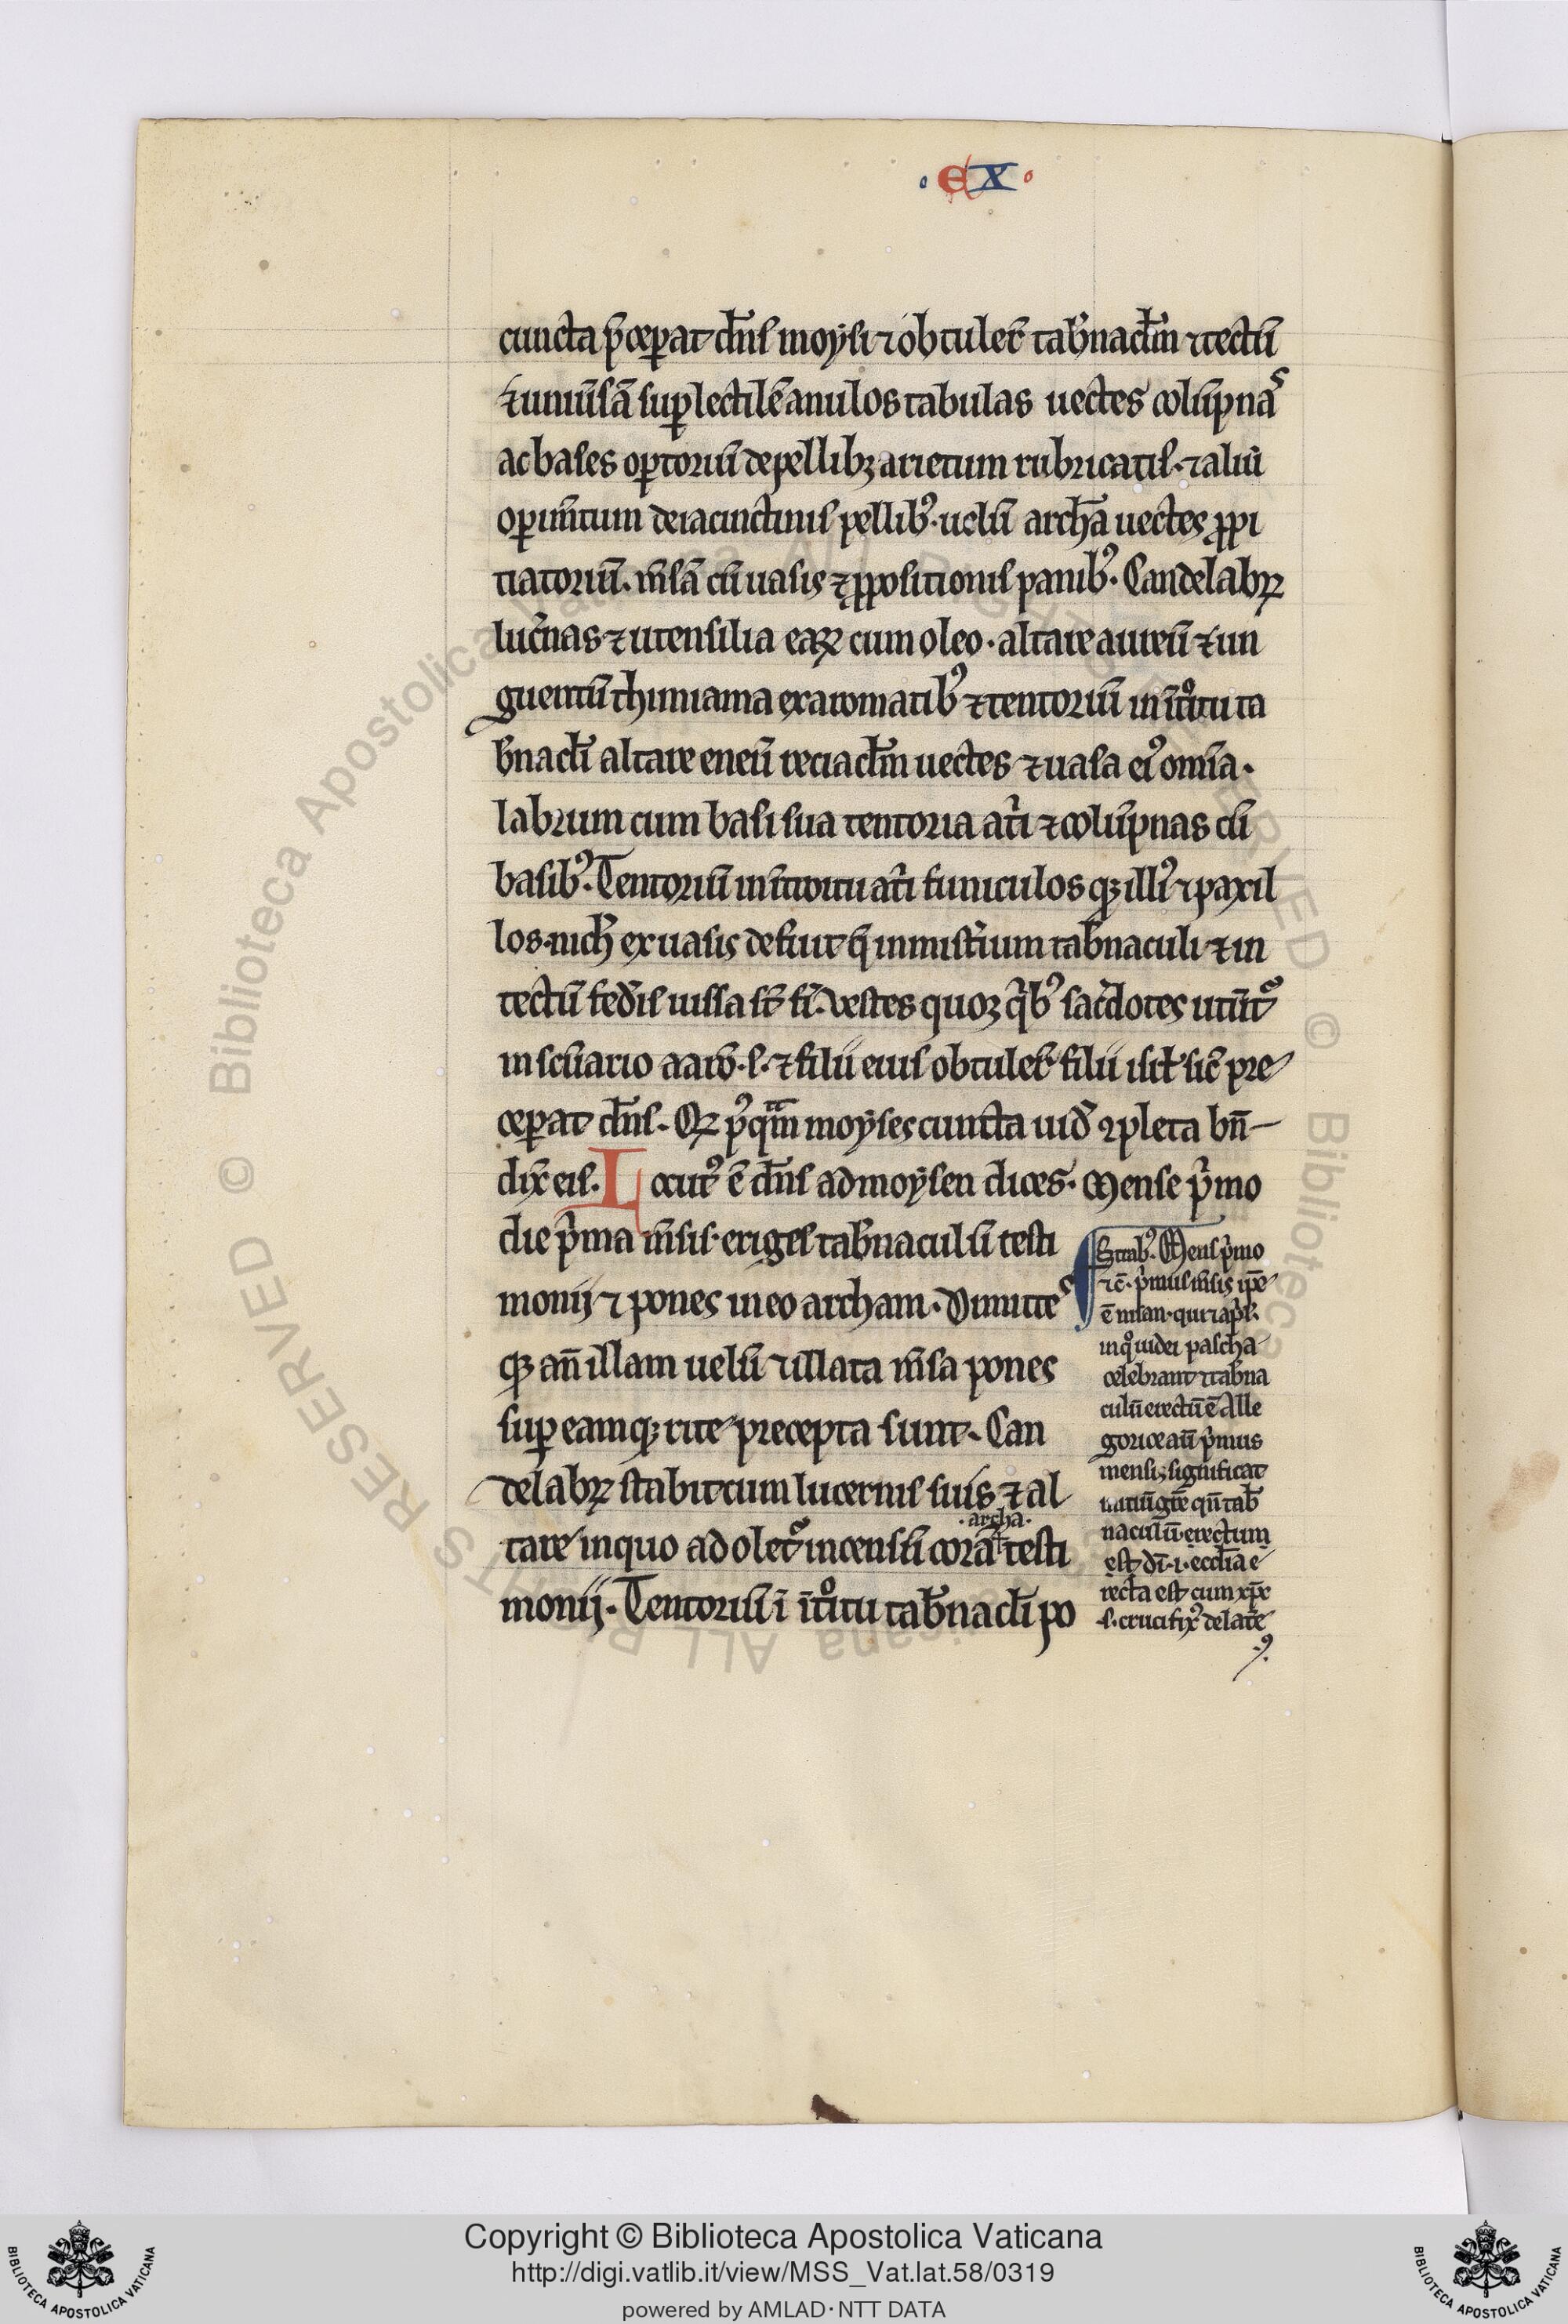 · EX ·
cuncta p̄ceꝑat dn̄s moysi ⁊ obtuler̄t tab̄nacl̄m ⁊ tectū
⁊ uniūsā suꝑlectilē anulos tabulas uectes colūpnas
ac bases oꝑtoriū de pellibꝫ arietum rubricatis · ⁊ aliud
oꝑim̄tum de iacinctinis pellibꝰ · uelū archā uectes ꝓpi
tiatoriū · m̄sā cū uasis ⁊ ꝓpositionis panibꝰ · Candelabꝝ
luc̄nas ⁊ utensilia eaꝝ cum oleo · altare aureū ⁊ un
guentū thimiama ex aromatibꝰ ⁊ tentoriū in ītͦitu ta
b̄nacl̄i altare eneū reciacl̄m uectes ⁊ uasa eiꝰ omīa ·
labrum cum basi sua tentoria at̄i ⁊ colūpnas cū
basibꝰ · Tentoriū in īt̄oitu at̄i funiculos qꝫ illiꝰ ⁊ paxil
los · nich̄ ex uasis defuit q̄ in minist̄ium tab̄naculi ⁊ in
tectū fed̄is iussa st̄ fi̅ · vestes quoꝫ q̄bꝰ sac̄dotes utūt᷑
in sc̄uario aaro̅ · s · ⁊ filii eius obtuler̄t filii isrl̄ sic̄ pre
ceꝑat dn̄s · Qꝫ pꝰqm̄ moyses cuncta uid̄ ꝯpleta bn̄
dix̄ eis · Locutꝰ ē dn̄s ad moysen dices · Mense p̄mo
die p̄ma m̄sis · eriges tab̄naculū testi
monij ⁊ pones in eo archam · Dimittes
qꝫ an̄ illam uelū ⁊ illata m̄sa pones
suꝑ eam qꝫ rite precepta sunt · Can
delabꝝ stabit cum lucernis suis ⁊ al
· archa ·
tare in quo adolet᷑ incensū corā testi
monij · Tentoriū ī ītͦitu tab̄nacl̄i po
Strabꝰ · Mens p̄mo
⁊c̄ · p̄mus m̄sis ip̄e
ē nisan · qui ⁊ ap̄l̄ ·
in qͦ iudei pascha
celebrant ⁊ tab̄na
culū erectū ē Alle
gorice aū p̄mus
mensis significat
initiū gr̄e qn̄ tab̄
naculū erectum
est dī · i · eccl̄ia e
recta est cum xp̄c
· s · crucifixꝰ de late
· ꝰ ·
Copyright © Biblioteca Apostolica Vaticana
http://digi.vatlib.it/view/MSS_Vat.lat.58/0319
powered by AMLAD · NTT DATA
BIBLIOTECA APOSTOLICA VATICANA
BIBLIOTECA APOSTOLICA VATICANA